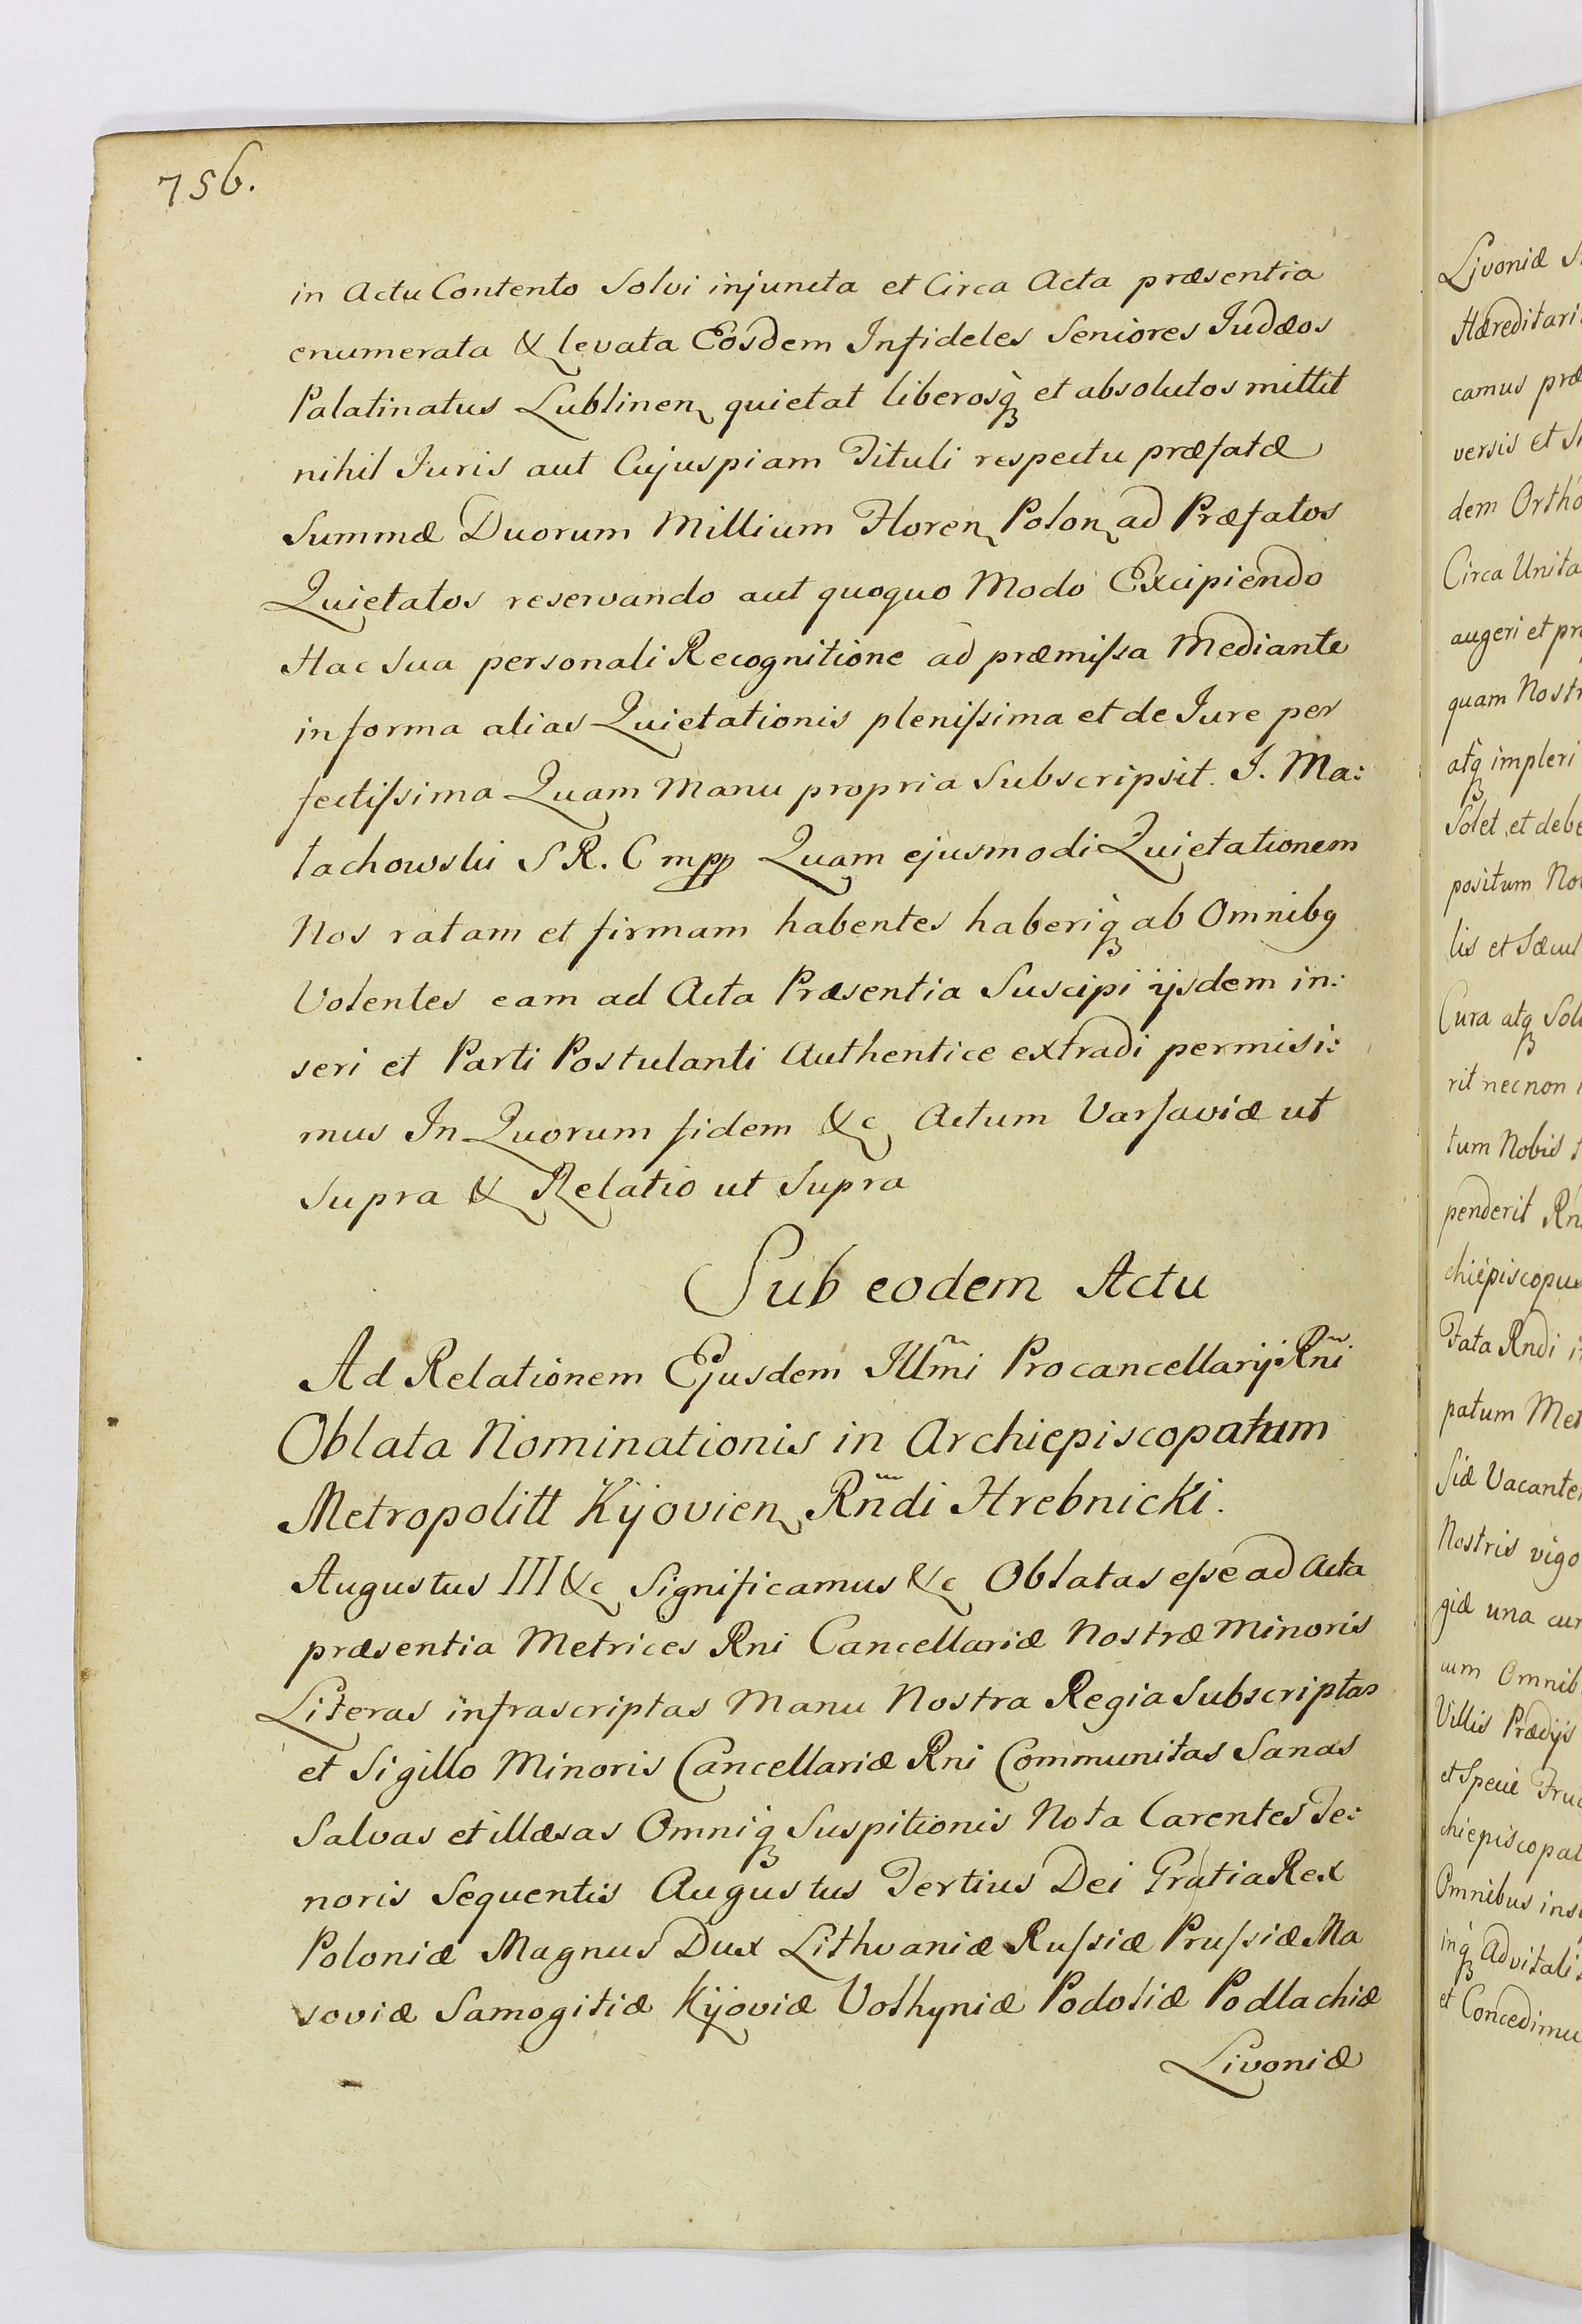 756.
in Actu Contento Solvi injuncta et Circa Acta præsentia
enumerata & levata Eosdem Infideles Seniores Iudæos
Palatinatus Lublinen quietat liberosq̀ et absolutos mittit
nihil Iuris aut Cujuspiam Tituli respectu præfatæ
Summæ Duorum Millium Floren Polon ad Præfatos
Quietatos reservando aut quoquo Modo Excipiendo
Hac Sua personali Recognitione ad præmiſsa Mediante
in forma alias Quietationis pleniſsima et de Iure per
fectiſsima Quam Manu propria Subscripsit. J. Ma:
łachowski S R. C mpp Quam ejusmodi Quietationem
Nos ratam et firmam habentes haberiq̀ ab Omnibq
Volentes eam ad Acta Præsentia Suscipi ijsdem in:
seri et Parti Postulanti Authentice extradi permisi:
mus In Quorum fidem &c Actum Varsaviæ ut
Supra & Relatio ut Supra
Sub eodem Actu
Ad Relationem Ejusdem Illm̃i Procancellarij Rñi
Oblata Nominationis in Archiepiscopatum
Metropolitt Kijovien Rñdi Hrebnicki.
Augustus III &c Significamus &c Oblatas eſse ad Acta
præsentia Metrices Rni Cancellariæ Nostræ Minoris
Literas infrascriptas Manu Nostra Regia Subscriptas
et Sigillo Minoris Cancellariæ Rni Communitas Sanas
Salvas et illæsas Omniq̀ Suspitionis Nota Carentes Te:
noris Sequentis Augustus Tertius Dei Gratia Rex
Poloniæ Magnus Dux Lithvaniæ Ruſsiæ Pruſsiæ Ma
soviæ Samogitiæ Kijoviæ Volhyniæ Podoliæ Podlachiæ
Livoniæ
Livoniæ
Hæreditari
camus præ
versis et
dem Ortho
Circa Unita
augeri et pr
quam Nostr
atq̀ impleri
Solet, et debe
positum No
lis et Sæcul
Cura atq Soli
rit necnon
tum Nobis
penderit Rn
chiepiscopus
Fata Rndi
patum Met
siæ Vacante
Nostris vigo
giæ una cur
cum Omnib
Villis Prædijs
et Specie Fruc
chiepiscopat
Omnibus ins
inq̀ Advitali
et Concedimu